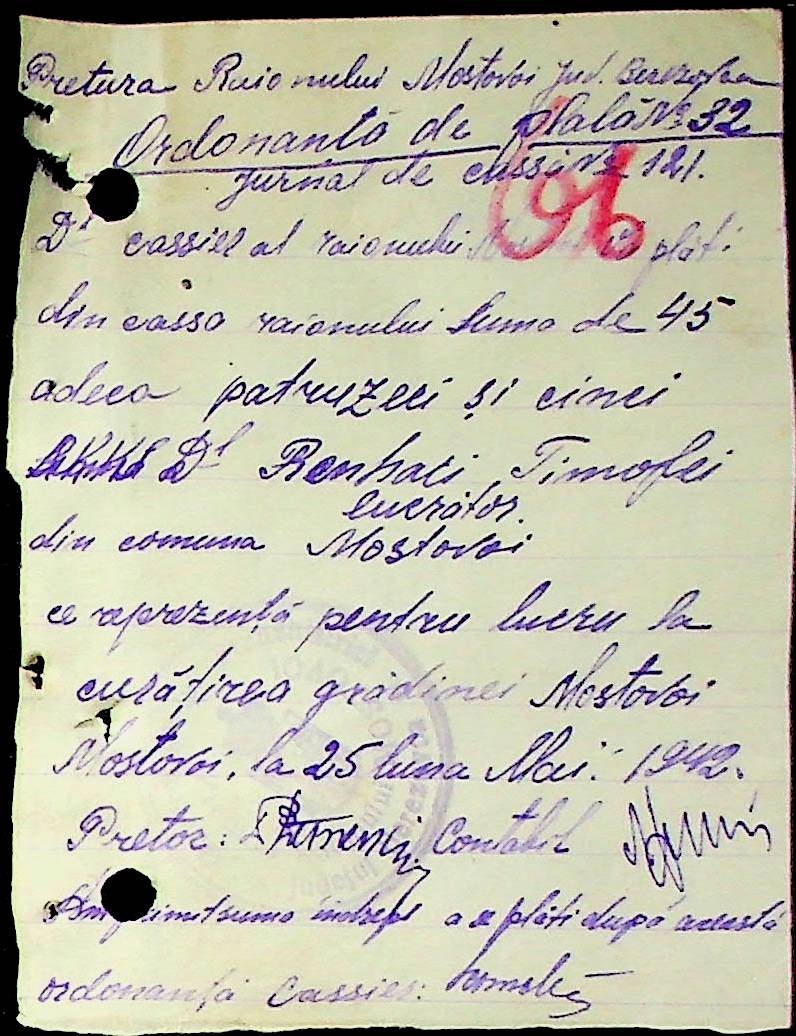 Pretura Raionului Mostovoi Jud. Berezovca
Ordonantă de plată № 32
Jurnal de cassă № 121.
96
Dl cassier al raionului plăti
din cassa raionului suma de 45
adeca patruzeci și cinci
Dl Timofei
lucrător.
din comuna Mostovoi
ce reprezentă pentru lucru la
curățirea grădinei Mostovoi
Mostovoi, la 25 luna Mai 1942.
Pretor: Contabil
Am primit suma a se plăti după această
ordonanță Cassier: